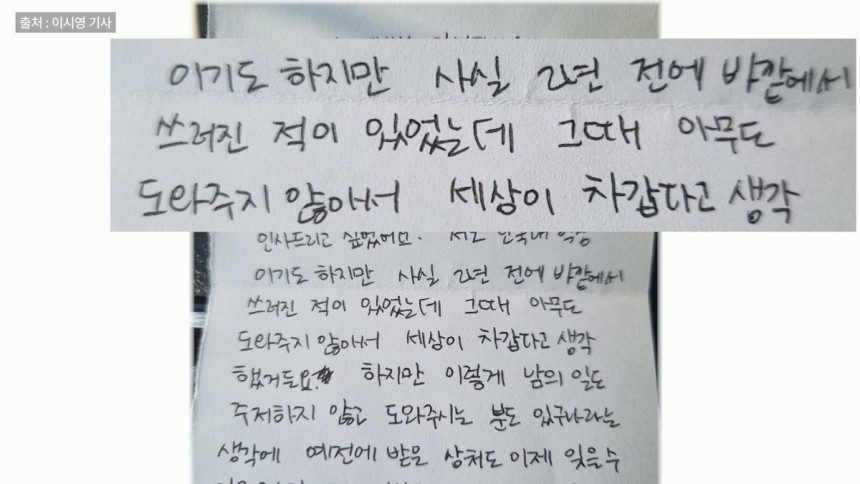 출처 : 이시영 기사
이기도 하지만 사실 2년 전에 바깥에서
쓰러진 적이 있었는데 그때 아무도
도와주지 않아서 세상이 차갑다고 생각
인사드리고 싶었어요.
이기도 하지만 사실 2년 전에 바깥에서
쓰러진 적이 있었는데 그때 아무도
도와주지 않아서 세상이 차갑다고 생각
했거든요. 하지만 이렇게 남의 일도
주저하지 않고 도와주시는 분도 있구나라는
생각에 예전에 받은 상처도 이제 잊을 수